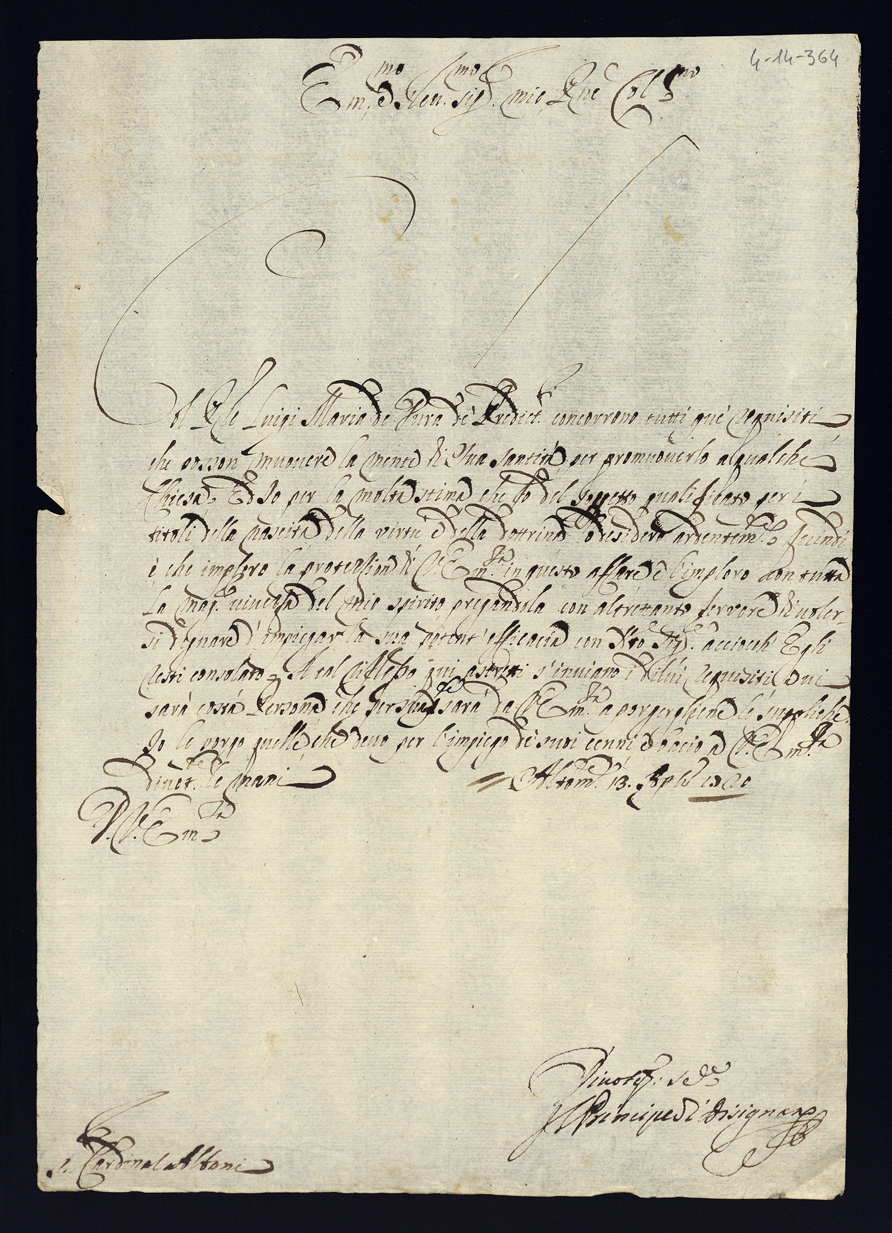 4-14-364
Em.mo e Reu. Sig.mo mio P.ne Col.mo
Luigi Maria de Jura de Predict. concorrono tutti que requisiti
che posson muovere la mente di Sua Santità per promuoverlo a qualche
Chiesa. Ed Io per la molta stima che fo del sogetto qualificato per i
titoli della nascita della virtù e della dottrina lo desidero ardentem.te quindi
è che imploro la protension di V. Em.za in questo affare e l'imploro con tutta
la mag. del mio spirito pregandola con altrettanto fervore di voler-
si degnare d'impiegar la sua potent' efficacia con N.ro Sig.e acciocch Egli
resti consolato. A tal qui s'inviano i requisiti
sarà costà Persona che per sarà da V. Em.za a porgerghene le suppliche.
Io le porgo quelle che devo per l'impiego de suoi cenni e bacio a V. Em.za
divot.te le mani Altom.e 13. 1720
D. V. Em.za
Divotis. ser.e
Il Principe di Bisignano
S. Cardinal Albani